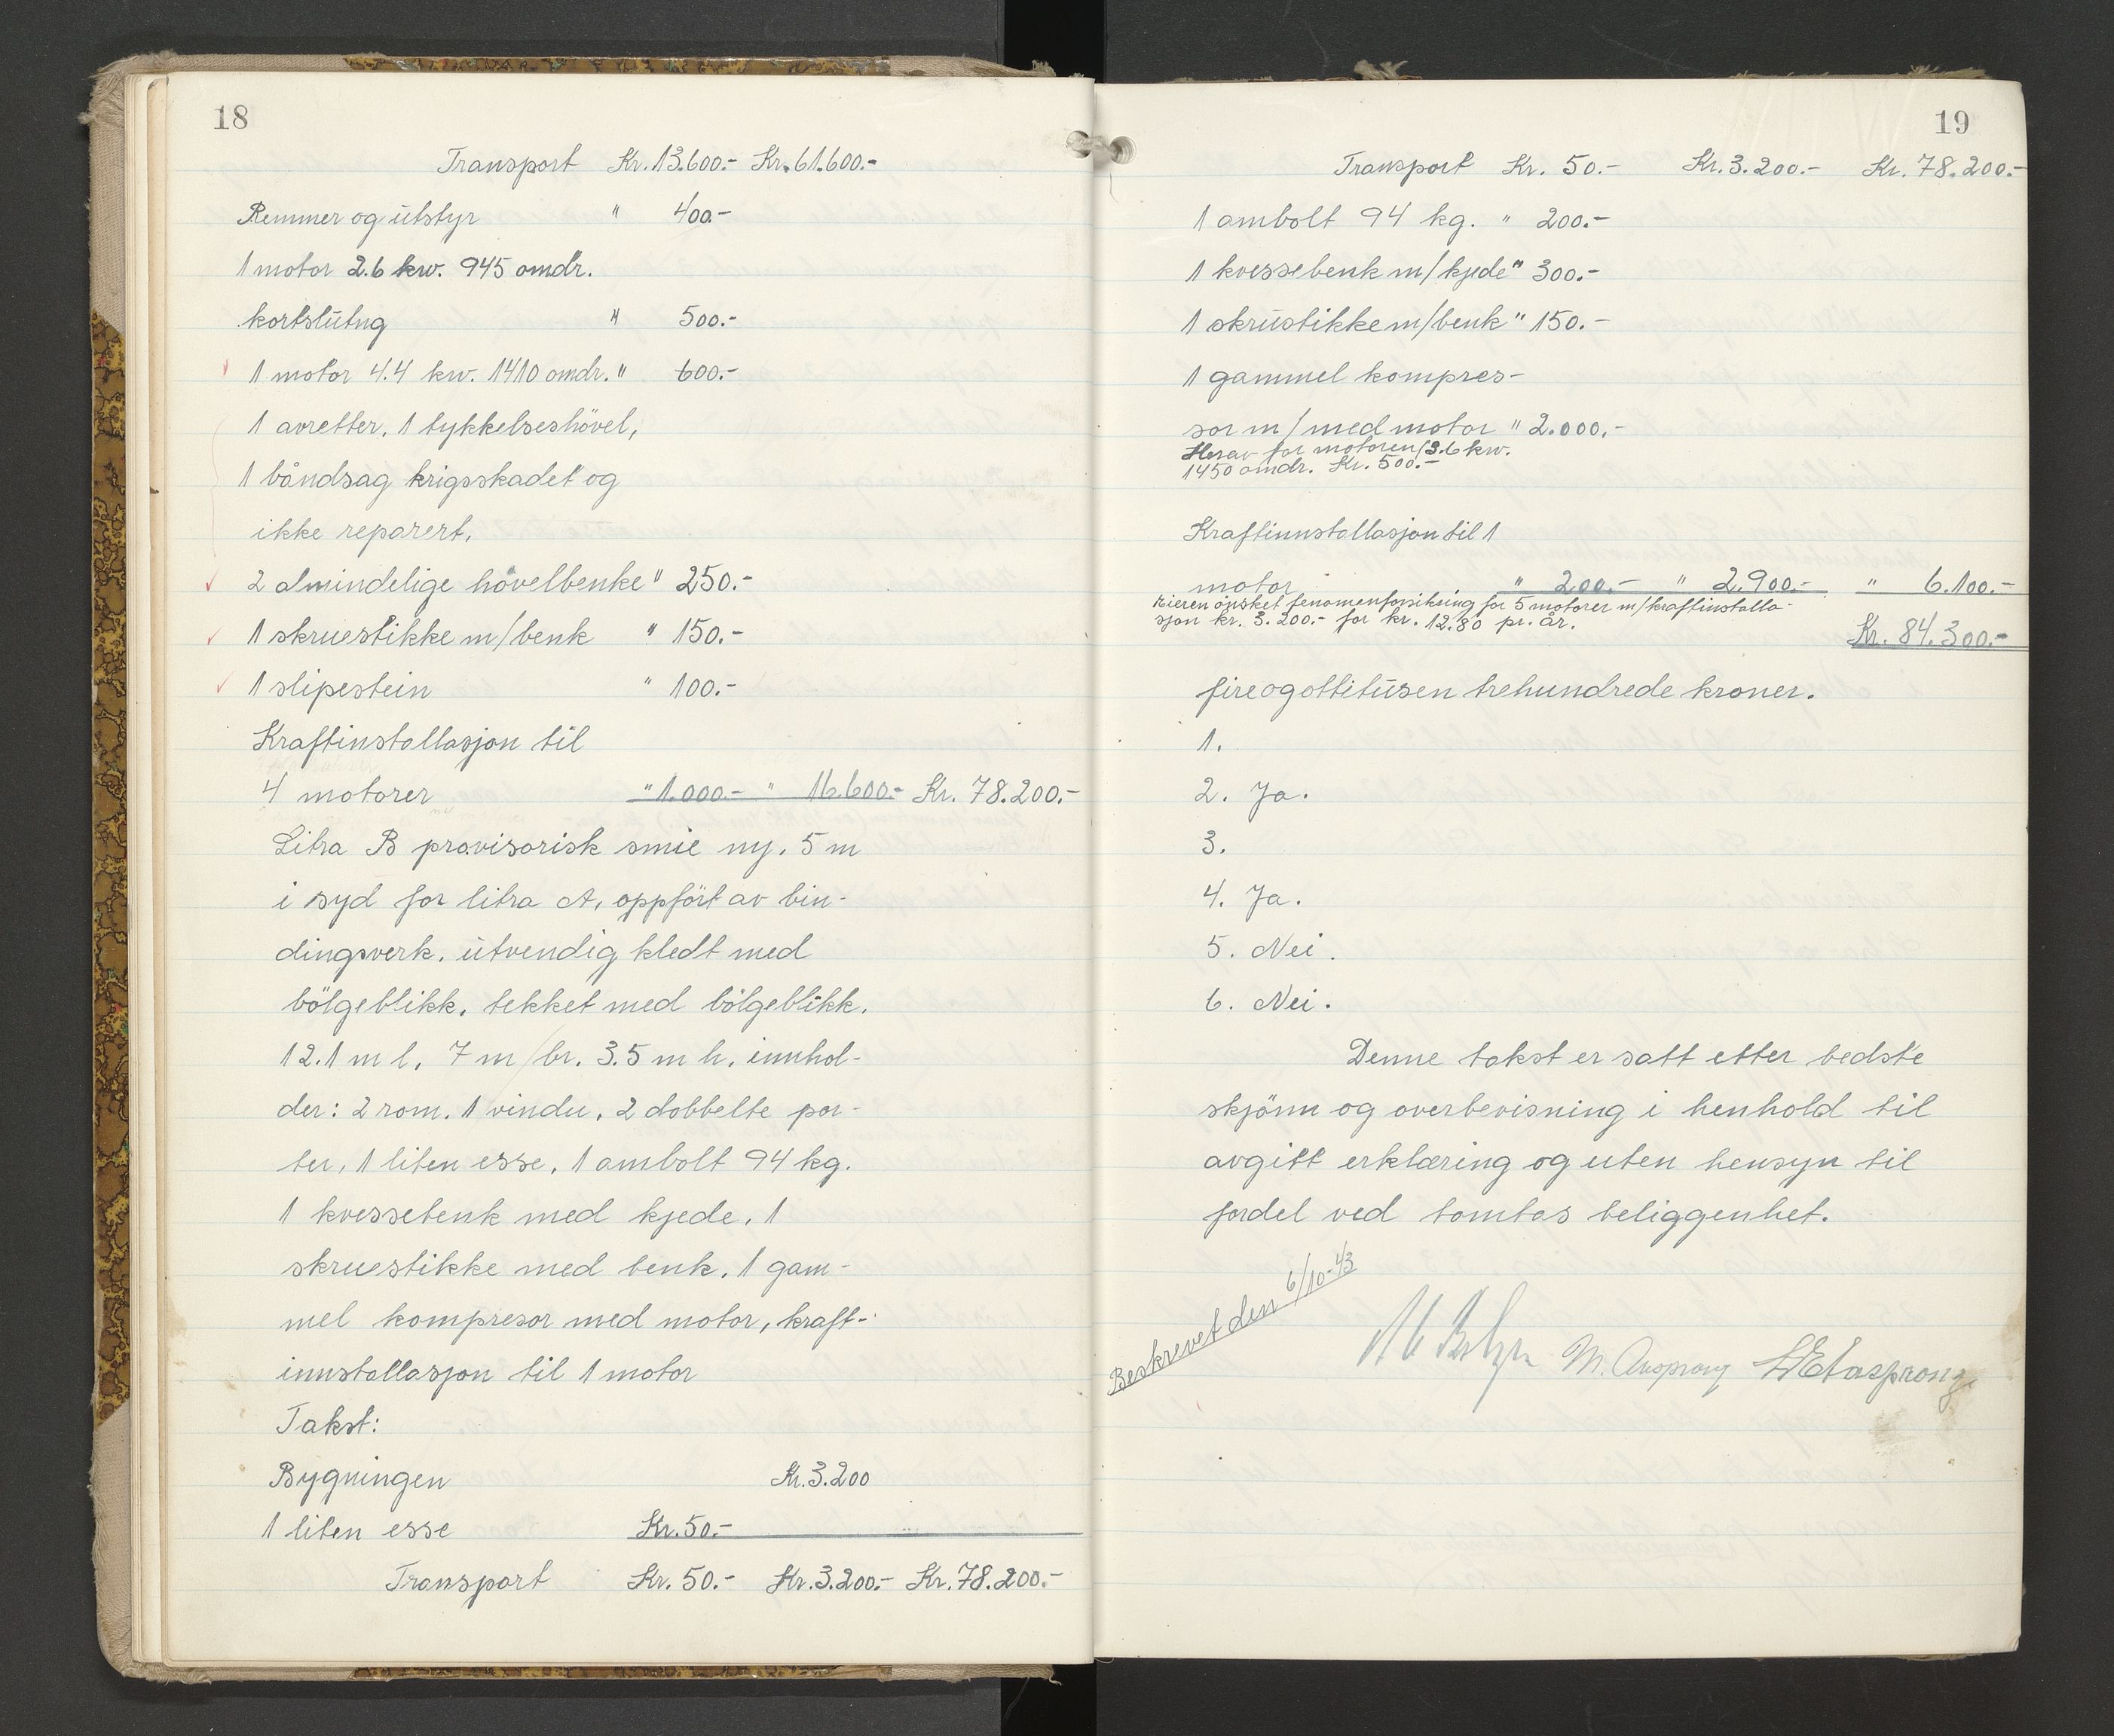 18
Transport Kr. 13.600.- Kr. 61.600.-
Remmer og utstyr " 400.-
1 motor 2.6 kw. 945 omdr.
kortslutng " 500.-
1 motor 4.4 kw. 1410 omdr. " 600.-
1 avretter, 1 tykkelseshövel,
1 båndsag krigsskadet og
ikke reparert.
2 almindelige hövelbenke " 250.-
1 skruestikke m/benk " 150.-
1 slipestein " 100.-
Kraftinstallasjon til
4 motorer " 1.000.- " 16.600.- Kr. 78.200.-
Litra B provisorisk smie ny. 5 m
i syd for litra A, oppfört av bin-
dingsverk. utvendig kledt med
bölgeblikk. tekket med bölgeblikk.
12.1 m l. 7 m br. 3.5 m h. innhol-
der: 2 rom. 1 vindu, 2 dobbelte por-
ter, 1 liten esse, 1 ambolt 94 kg.
1 kvessebenk med kjede. 1
skruestikke med benk. 1 gam-
mel kompresor med motor, kraft-
innstallasjon til 1 motor
Takst:
Bygningen Kr. 3.200
1 liten esse Kr. 50.-
Transport Kr. 50.- Kr. 3.200.- Kr. 78.200.-
19
Transport Kr. 50.- Kr. 3.200.- Kr. 78.200.-
1 ambolt 94 kg. " 200.-
1 kvessebenk m/kjede " 300.-
1 skrustikke m/benk " 150.-
1 gammel kompres-
sor m/med motor " 2.000.-
Herav for motoren/3.6 kw.
1450 omdr. Kr. 500.-
Kraftinnstallasjon til 1
motor " 200.- " 2.900.- " 6.100.-
Eieren önsket fenomenforsikring for 5 motorer m/kraftinstalla-
sjon kr. 3.200.- for kr. 12.80 pr. år.
Kr. 84.300.-
fireogottitusen trehundrede kroner.
1.
2. Ja.
3.
4. Ja.
5. Nei.
6. Nei.
Denne takst er satt etter bedste
skjönn og overbevisning i henhold til
avgitt erklæring og uten hensyn til
fordel ved tomtas beliggenhet.
Beskrevet den 6/10-43
M. Ansprong